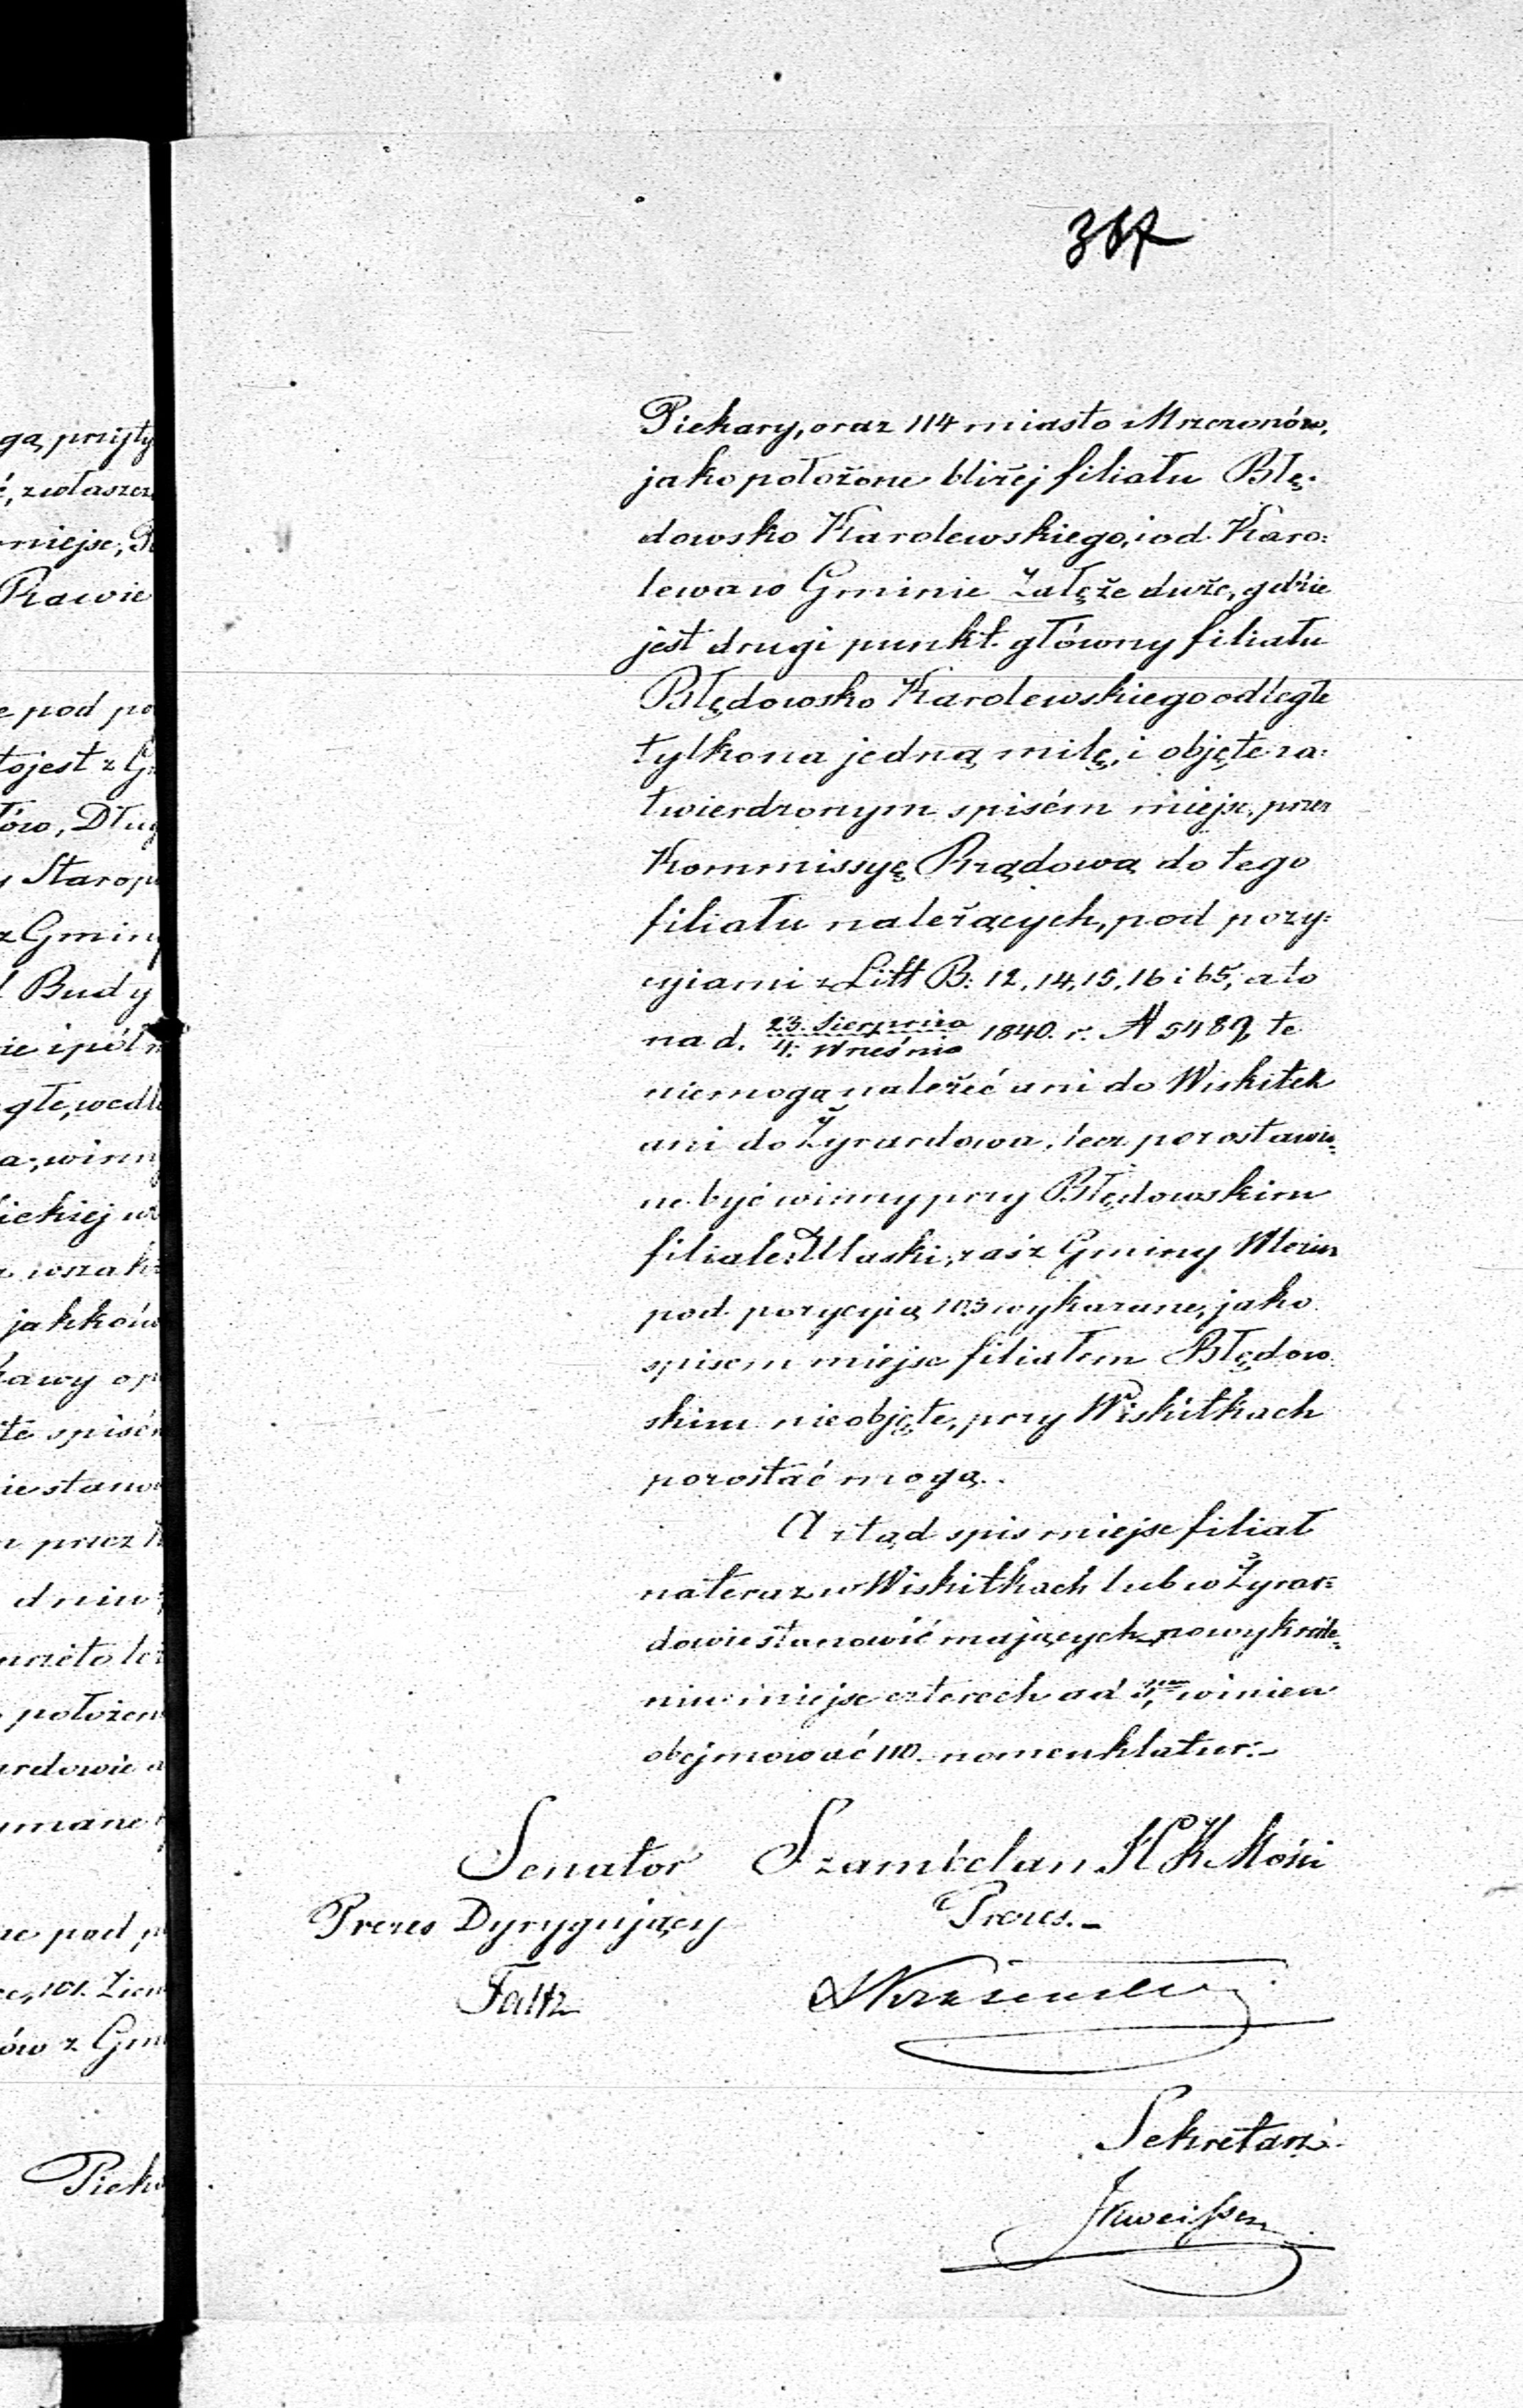 367
Piekary, oraz 114 miasto Mszczonów,
jako położone bliżej filiału Błę-
dowsko Karolewskiego, i od Karo:
lewa w Gminie Załęże duże, gdzie
jest drugi punkt główny filiału
Błędowsko Karolewskiego odległe
tylko na jedną milę, i objęte za:
twierdzonym spisém miejsc, przez
Kommissyę Rządową do tego
filiału należących, pod pozy:
cyiami z Litt B: 12, 14, 15, 16 i 65, a to
na d. 23. Sierpnia / 4. Września 1840. r. N 5489, te
niemogą należéć ani do Wiskitek
ani do Żyrardowa, lecz pozostawio:
ne być winny przy Błędowskim
filiale. Ulaski, zaś z Gminy
pod pozycyią 103 wykazane, jako
spisem miejsc filiałem Błędow
skim nieobjęte, przy Wiskitkach
pozostać mogą.
A ztąd spis miejsc filiał
na teraz w Wiskitkach lub w Żyrar:
dowie stanowić mających, po wykréśle:
niu miejsc czterech ad winien
obejmować 110. nomenklatur.-
Senator Szambelan J K K Mości
Prezes Dyrygujący Prezes.-
Faltz
Sekretarz
ga, przyjty
, zwłaszcz
miejsc,
Rawie
e pod po
tojest z G
tów, Dług
Starop
z Gminy
Budy
ie i pół
głe, wedl
a, winny
ickiej
wszak
jakków
ławy op
te spisém
ie stanow
przez
dniu
położen
ardowie
ymane
ne pod p
101.
ów z Gm
Pieka